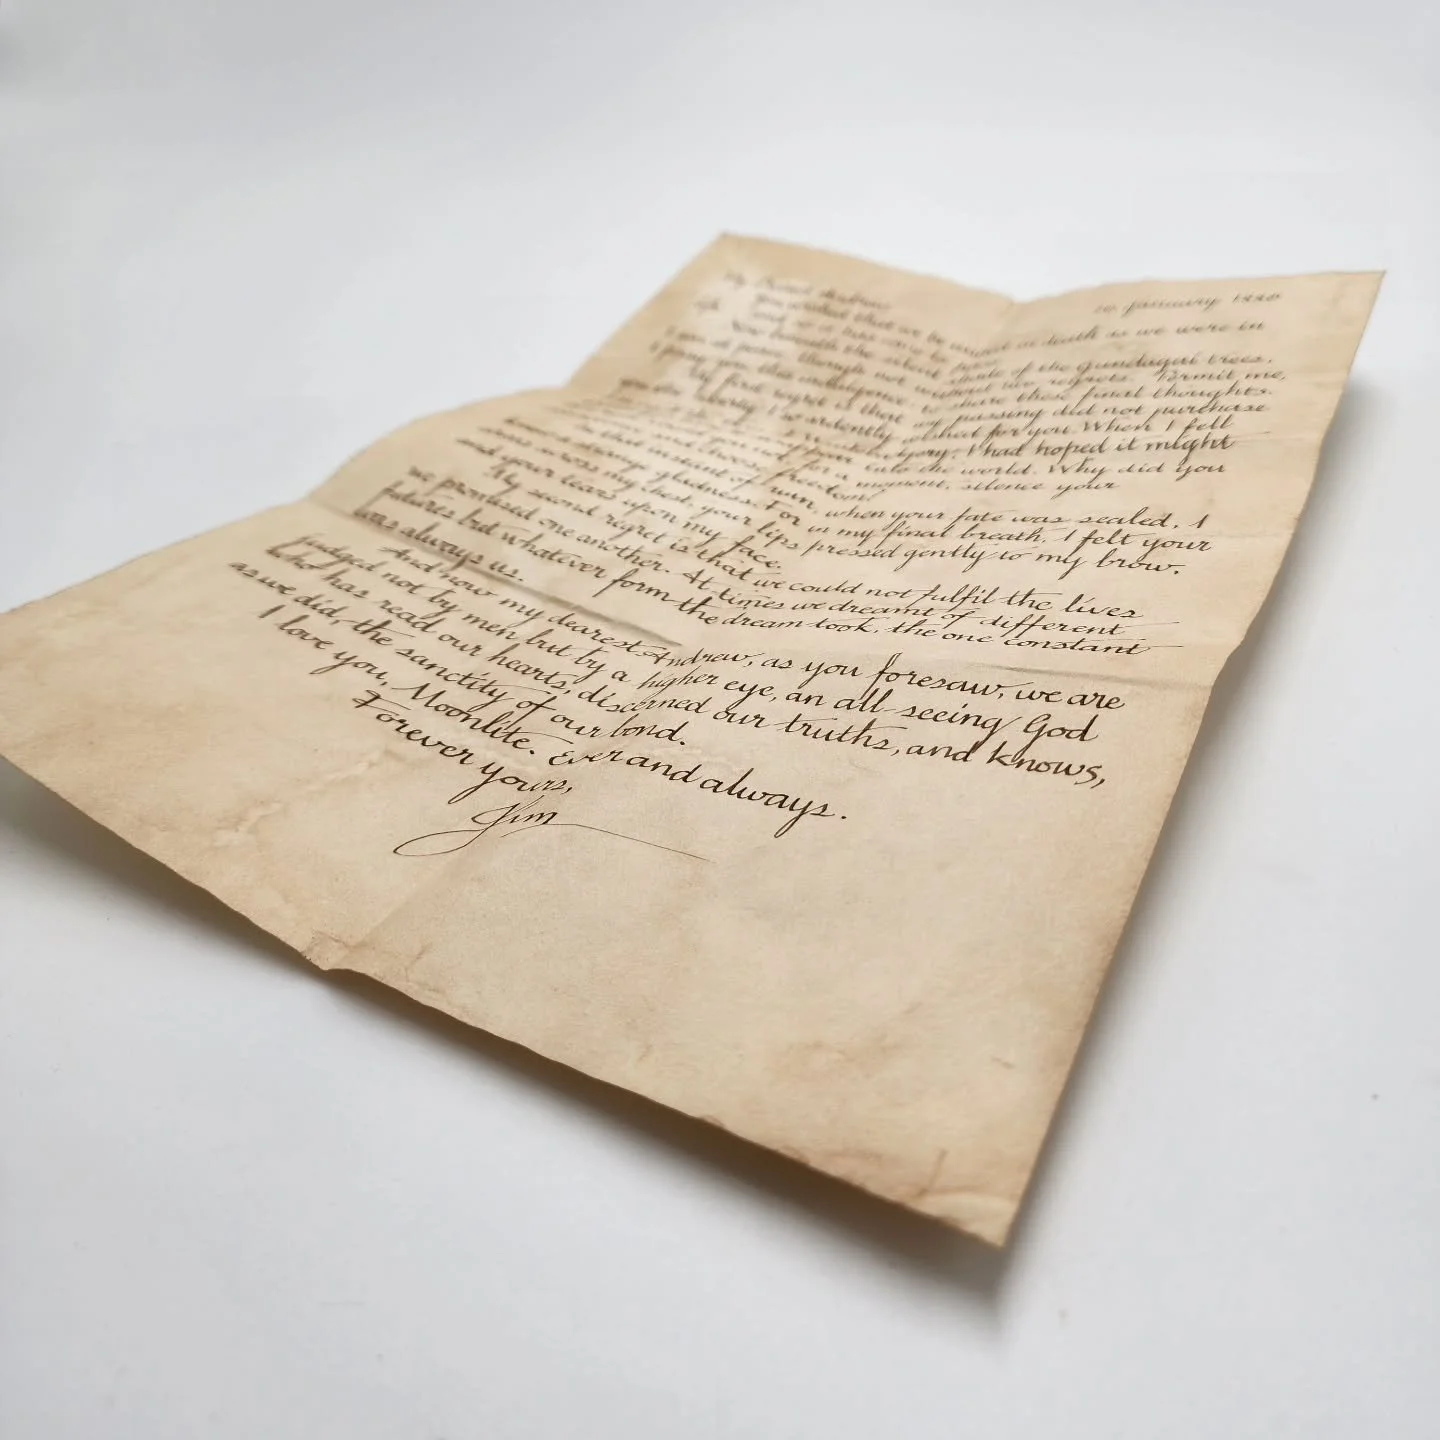 20 January 1880
My Dearest Andrew
You wished that we be united in death as we were in
life, and so it has come to pass.
Now beneath the silent shade of the Gundagai trees,
I am at peace, though not without two regrets. Permit me,
I pray you, this indulgence to share these final thoughts.
My first regret is that my passing did not purchase
you the liberty I so ardently wished for you. When I felt
I had hoped it might
into the world. Why did you
not for a moment, silence your
and choose freedom?
In that instant of ruin, when your fate was sealed, I
knew a strange gladness. For in my final breath, I felt your
arms across my chest, your lips pressed gently to my brow,
and your tears upon my face.
My second regret is that we could not fulfil the lives
we promised one another. At times we dreamt of different
futures but whatever form the dream took, the one constant
was always us.
And now my dearest Andrew, as you foresaw, we are
judged not by men but by a higher eye, an all-seeing God
who has read our hearts, discerned our truths, and knows,
as we did, the sanctity of our bond.
I love you, Moonlite. Ever and always.
Forever yours,
Jim